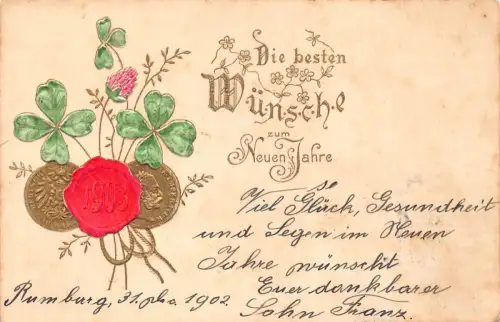 Die besten
Wünsche
zum
Neuen Jahre
1903
Viel Glück, Gesundheit
und Segen im Neuen
Jahre wünscht
Euer dankbarer
Sohn Franz.
Rumburg, 31. 1902.